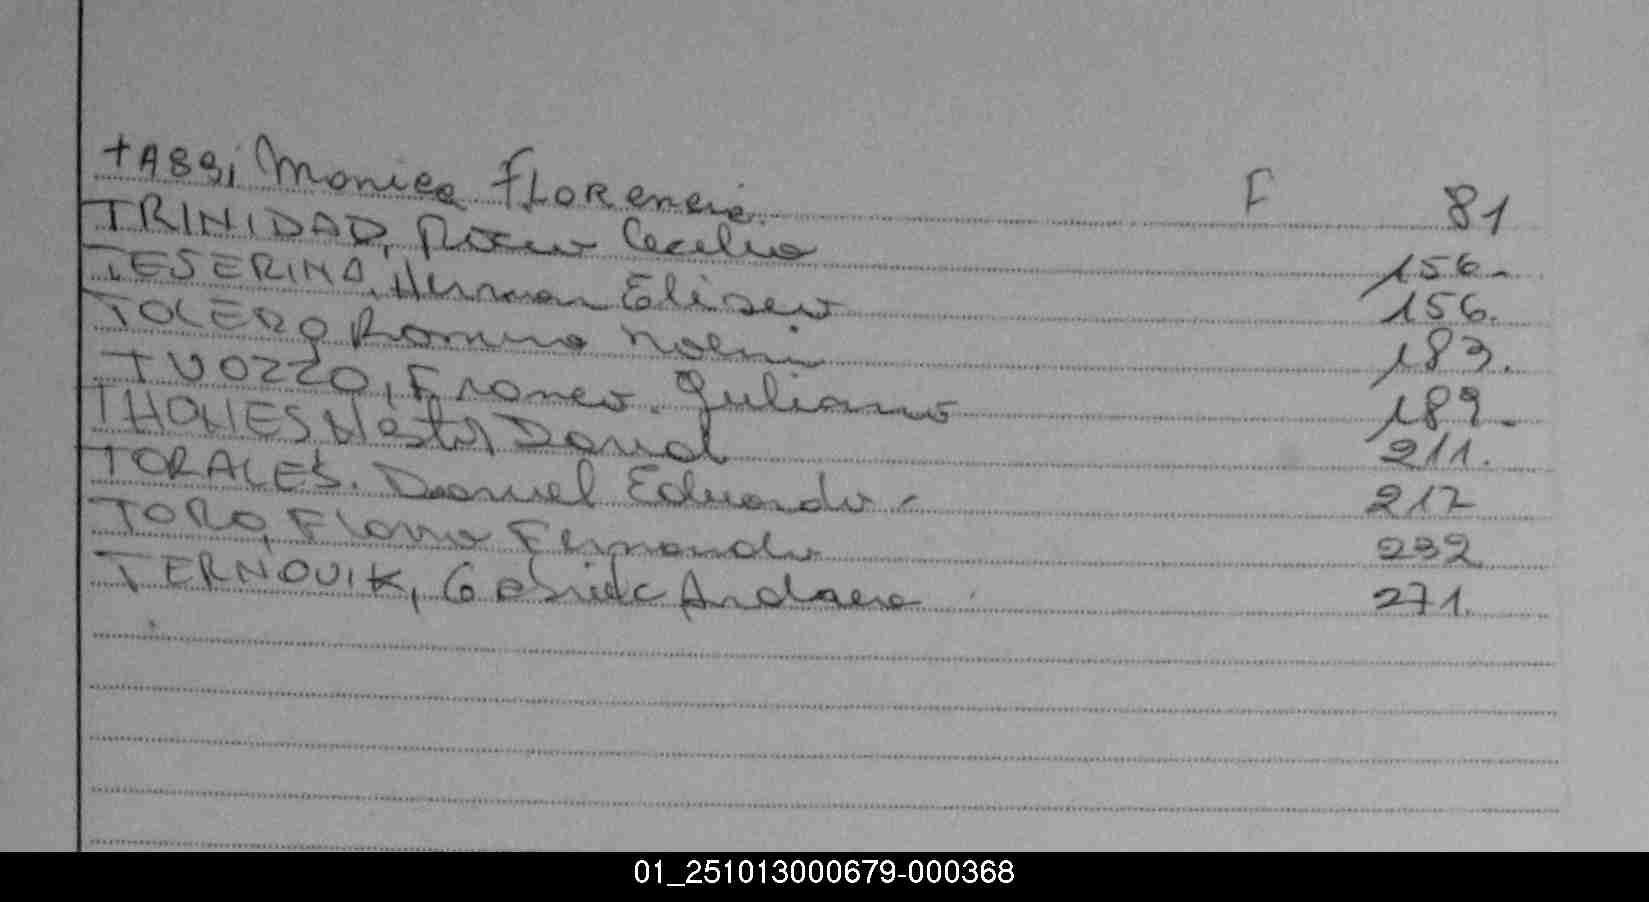 TASSi Monica FLORencia F 81
TRINIDAD, Cecilio 156.-
TESERINA, Herman Eliseo 156.
TOLEDO Romina Noemi 183.
TUOZZO, Franco. Juliano 189.-
THOMES Néstor David 211.
TORALES. Daniel Eduardo - 217
TORO, Flavio Fernando 232
TERNOVIK, Andrea 271.
01_251013000679-000368